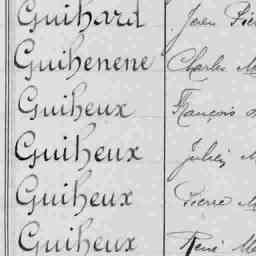 Guihard Jean Pier
Guihenene Charles M
Guiheux François
Guiheux Julien M
Guiheux Pierre M
Guiheux René M